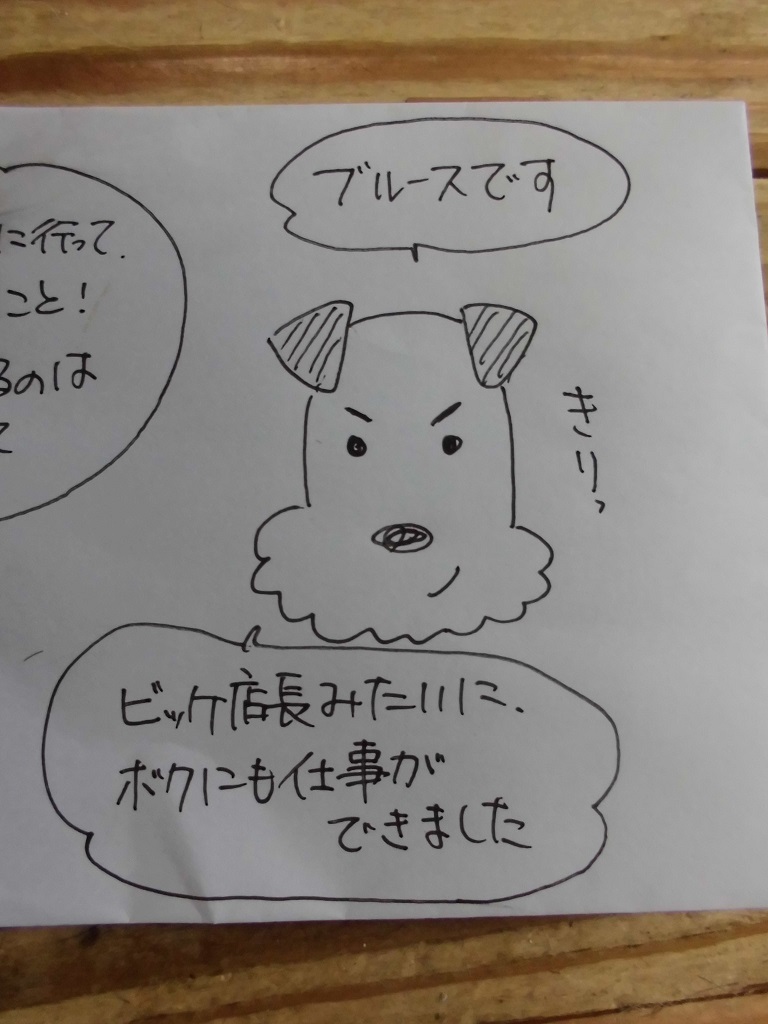 ブルースです
に行って、
こと！
るのは
て
きりっ
ビッケ店長みたいに、
ボクにも仕事が
できました